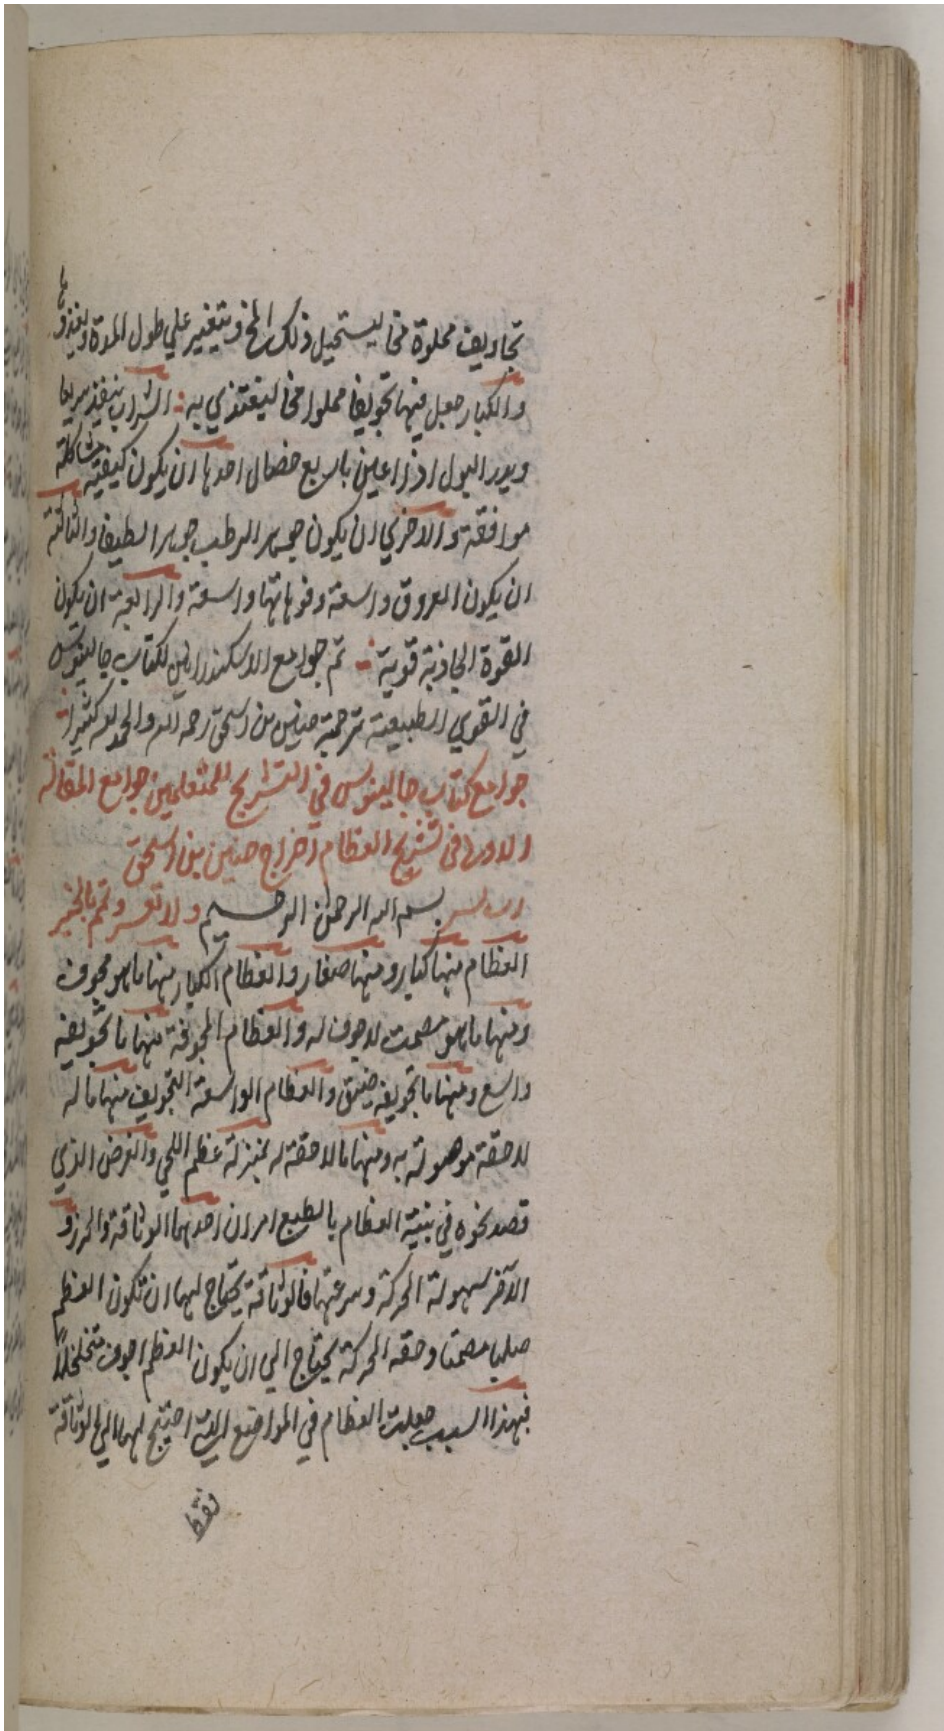 تجاويف مملوة مخا ليستحيل ذلك المخ ويتغير علي طول المدة ويغذو
والكبار جعل فيها تجويفا مملوا مخا ليغتذي به الشراب ينفذ سريعا
ويدر البول اذا اعين باربع خصال احدها ان يكون كيفيته مشاكلة
موافقة والاخري ان يكون جوهر الرطب جوهرا لطيفا والثالثة
ان يكون العروق واسعة وفوهاتها واسعة والرابعة ان يكون
القوة الجاذبة قوية تم جوامع الاسكندرانيين لكتاب جالينوس
في القوي الطبيعية ترجمة حنين بن اسحق رحمه الله والحمد لله كثيرا
جوامع كتاب جالينوس في التشريح للمتعلمين جوامع المقالة
الاولى في تشريح العظام اخراج حنين بن اسحق
رب يسر بسم الله الرحمن الرحيم ولا تعسر وتمم بالخير
العظام منها كبار ومنها صغار والعظام الكبار منها ما هو مجوف
ومنها ما هو مصمت لا جوف له والعظام المجوفة منها ما تجويفه
واسع ومنها ما تجويفه ضيق والعظام الواسعة التجويف منها ما له
لاحقة موصولة به ومنها ما لا لاحقة له بمنزلة عظم اللحي والغرض الذي
قصد نحوه في بنية العظام بالطبع امران احدهما الوثاقة والحرز و
الآخر سهولة الحركة وسرعتها فالوثاقة يحتاج لها ان تكون العظم
صلبا مصمتا وخفة الحركة يحتاج الي ان يكون العظم اجوف متخلخلاً
فبهذا السبب جعلت العظام في المواضع التي احتيج لها الي الوثاقة
فقط